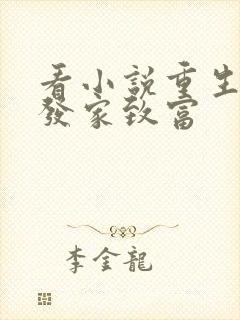 看小説重生
發家致富
李金龍